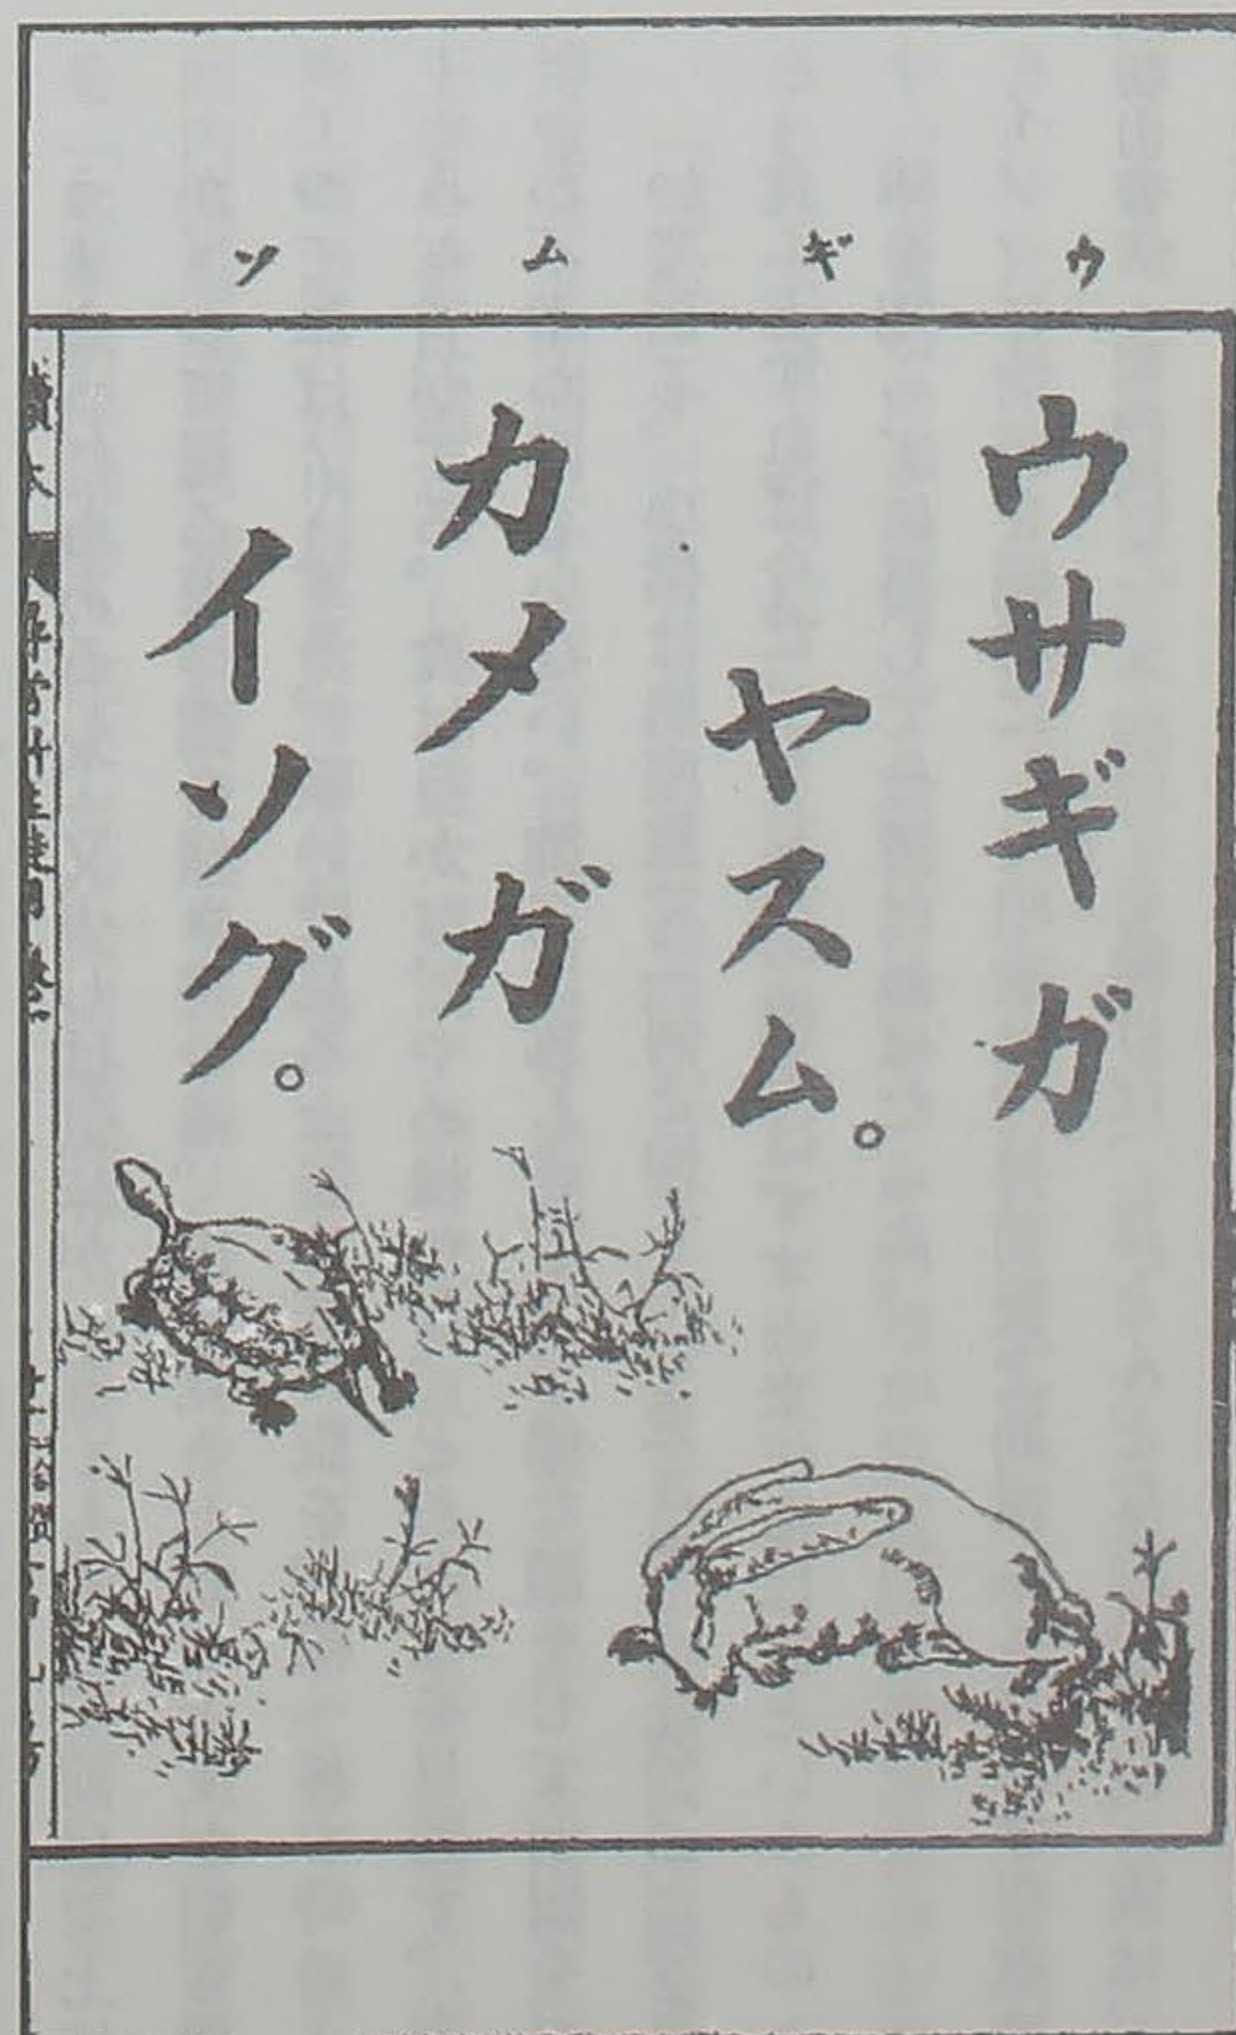 ウ
ギ
ム
ソ
ウサギガ
ヤスム。
カメガ
イソグ。